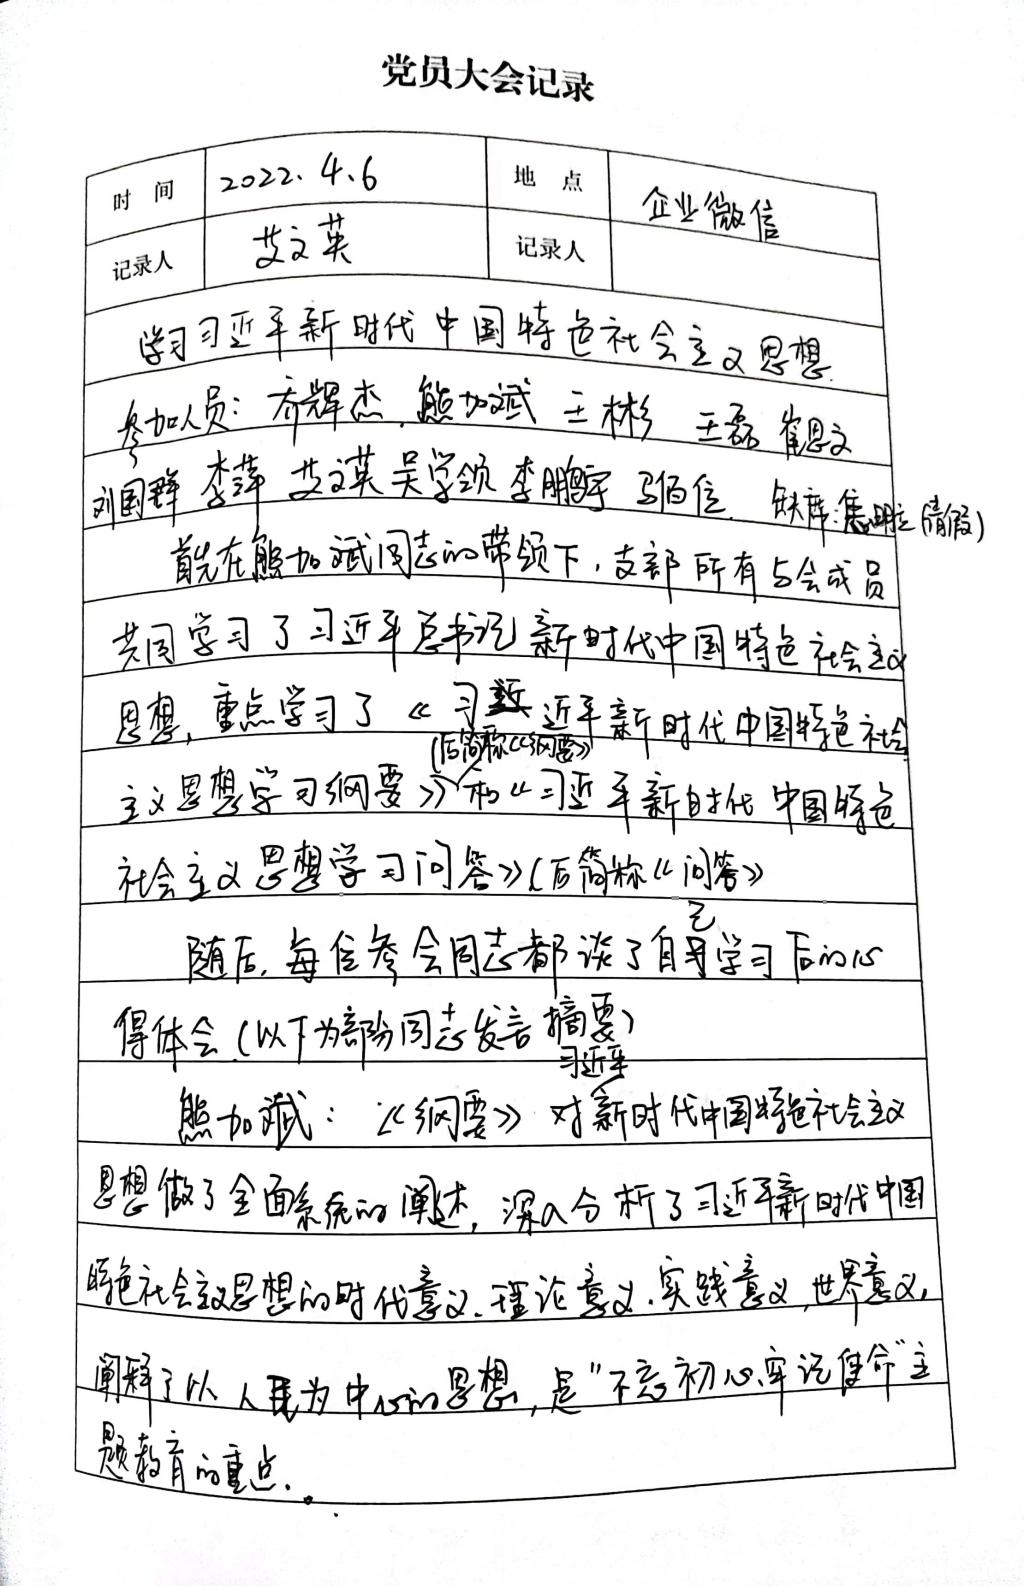 党员大会记录
时 间 2022.4.6 地 点 企业微信
记录人 艾文英 记录人
学习习近平新时代中国特色社会主义思想.
参加人员：乔辉杰、熊加斌 王彬 王磊 崔恩文
刘国群 李萍 艾文英 吴学领 李鹏宇 马佰位. 缺席：(请假)
首先在熊加斌同志的带领下，支部所有与会成员
共同学习了习近平总书记新时代中国特色社会主义
思想，重点学习了《习近平新时代中国特色社会
(后简称《纲要》)
主义思想学习纲要》和《习近平新时代中国特色
社会主义思想学习问答》(后简称《问答》
随后，每位参会同志都谈了自己学习后的心
得体会（以下为部分同志发言摘要）
习近平
熊加斌：《纲要》对新时代中国特色社会主义
思想做了全面系统的阐述，深入分析了习近平新时代中国
特色社会主义思想的时代意义、理论意义、实践意义，世界意义，
阐释了以人民为中心的思想，是“不忘初心、牢记使命”主
题教育的重点.